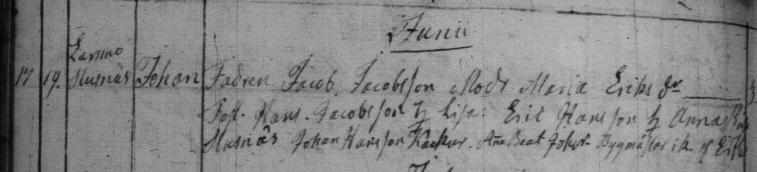 Junii
17 19. Larsmo Husnäs Johan Fadren Jacob Jacobsson Modr Maria Eriks dr
Hans Jacobsson h Lisa. Eric Hansson h Anna
Husnäs Johan Hansson Kackur. Ana Beat Johsr.